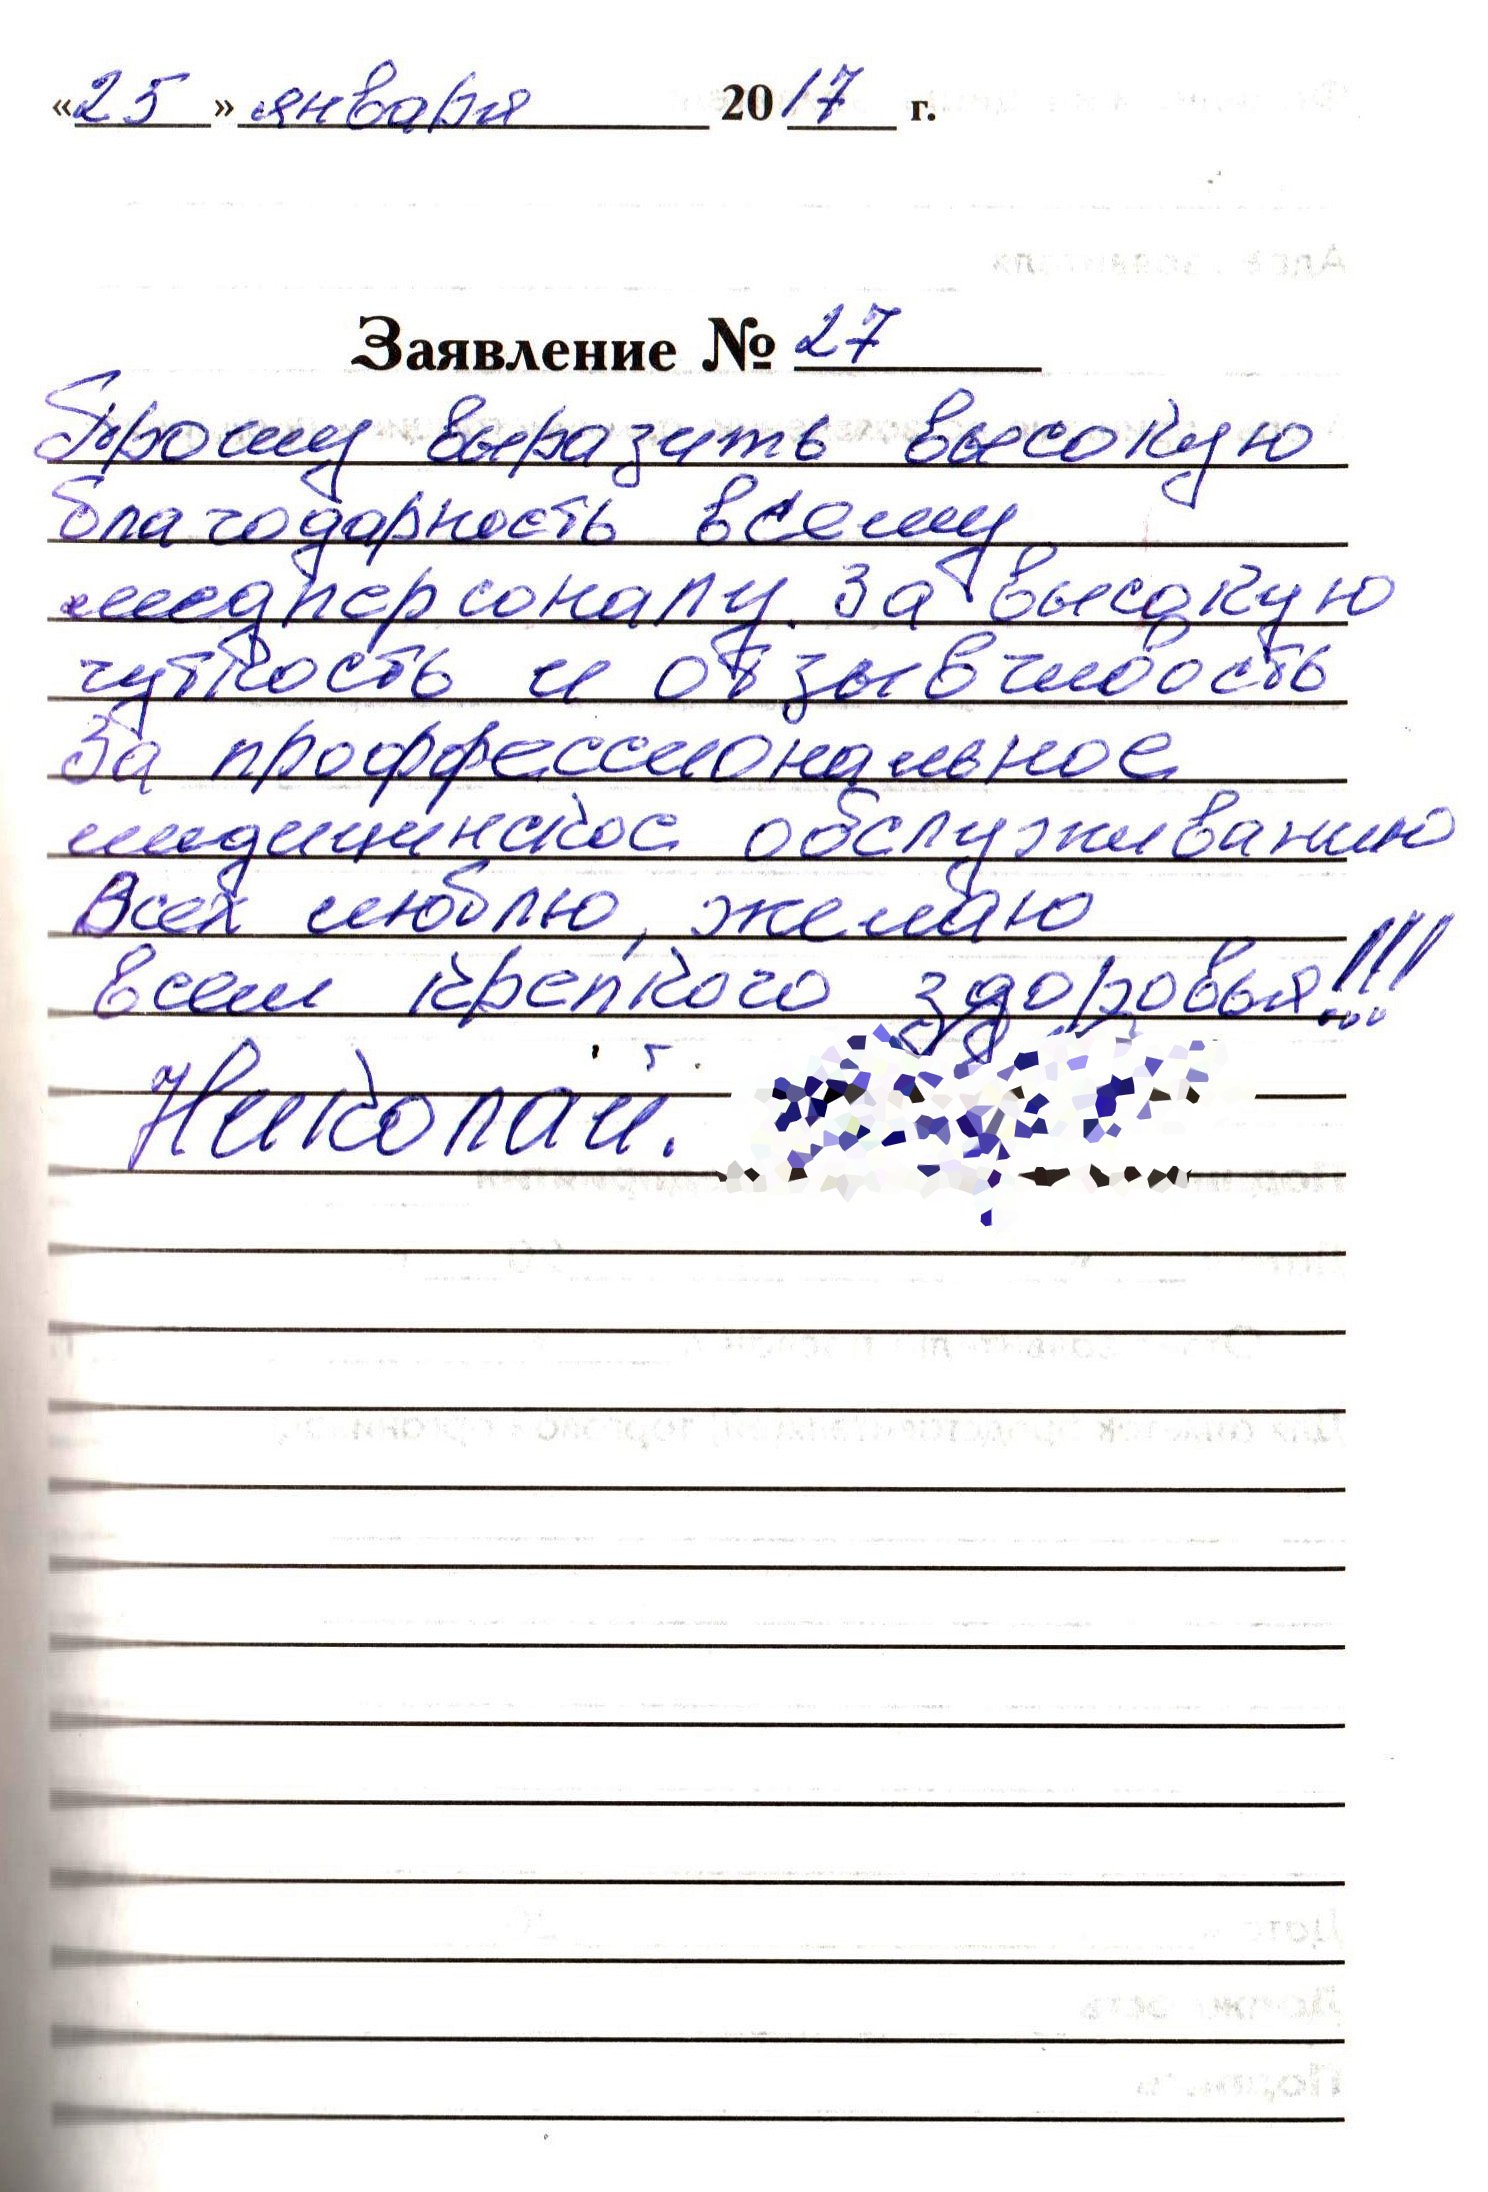 «25» января 2017 г.
Заявление № 27
Прошу выразить высокую
благодарность всему
медперсоналу. За высокую
чуткость и отзывчивость
За проффессиональное
медицинское обслуживанию
Всех люблю, желаю
всем крепкого здоровья!!!
Николай.